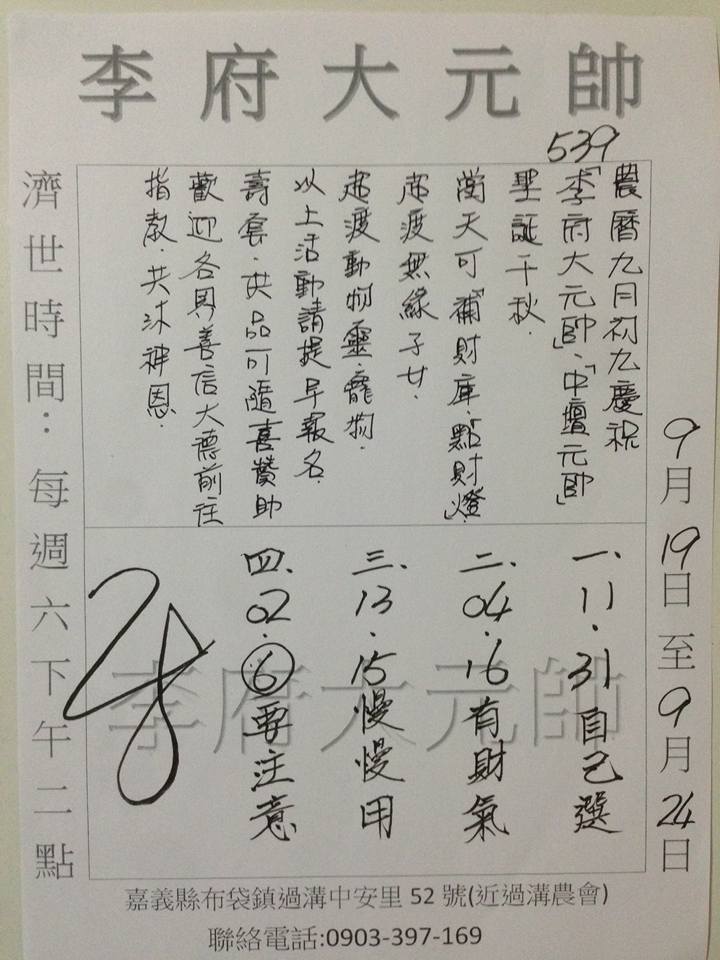 李府大元帥
539
農曆九月初九慶祝
「李府大元帥」、「中壇元帥」
聖誕千秋.
當天可「補財庫.點財燈」
超渡無緣子女.
超渡動物靈.寵物.
以上活動請提早報名.
壽套.供品可隨喜贊助
歡迎各界善信大德前往
指教.共沐神恩.
9月19日至9月24日
一、11.31自己選
二、04.16有財氣
三、13.15慢慢用
四、02.6要注意
李府大元帥
濟世時間:每週六下午二點
嘉義縣布袋鎮過溝中安里 52 號(近過溝農會)
聯絡電話:0903-397-169